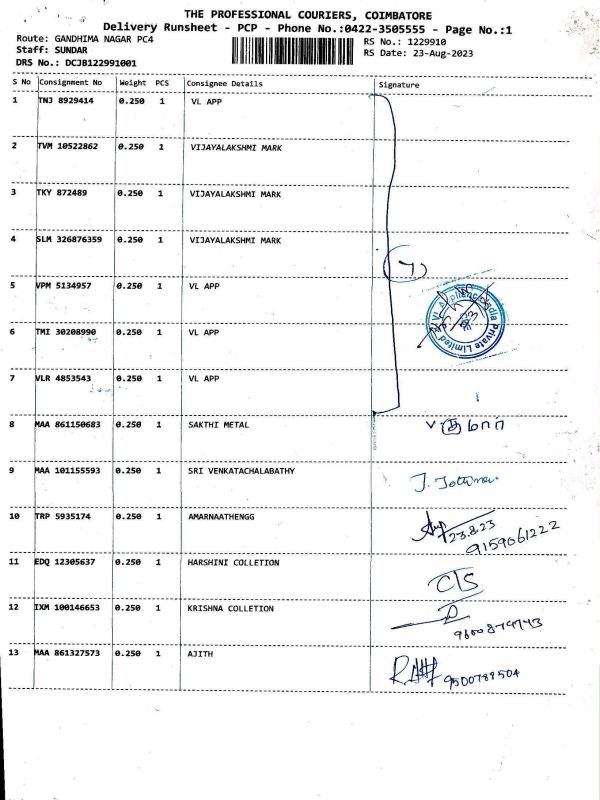 THE PROFESSIONAL COURIERS, COIMBATORE
Delivery Runsheet - PCP - Phone No.:0422-3505555 - Page No.:1
Route: GANDHIMA NAGAR PC4
RS No.: 1229910
Staff: SUNDAR
RS Date: 23-Aug-2023
DRS No.: DCJB122991001
S No Consignment No Weight PCS Consignee Details Signature
1 TNJ 8929414 0.250 1 VL APP
2 TVM 10522862 0.250 1 VIJAYALAKSHMI MARK
3 TKY 872489 0.250 1 VIJAYALAKSHMI MARK
4 SLM 326876359 0.250 1 VIJAYALAKSHMI MARK
7
5 VPM 5134957 0.250 1 VL APP
Private Limited
6 TMI 30208990 0.250 1 VL APP
7 VLR 4853543 0.250 1 VL APP
8 MAA 861150683 0.250 1 SAKTHI METAL
9 MAA 101155593 0.250 1 SRI VENKATACHALABATHY
10 TRP 5935174 0.250 1 AMARNAATHENGG
23.8.23
9159061222
11 EDQ 12305637 0.250 1 HARSHINI COLLETION
12 IXM 100146653 0.250 1 KRISHNA COLLETION
13 MAA 861327573 0.250 1 AJITH
9500789504